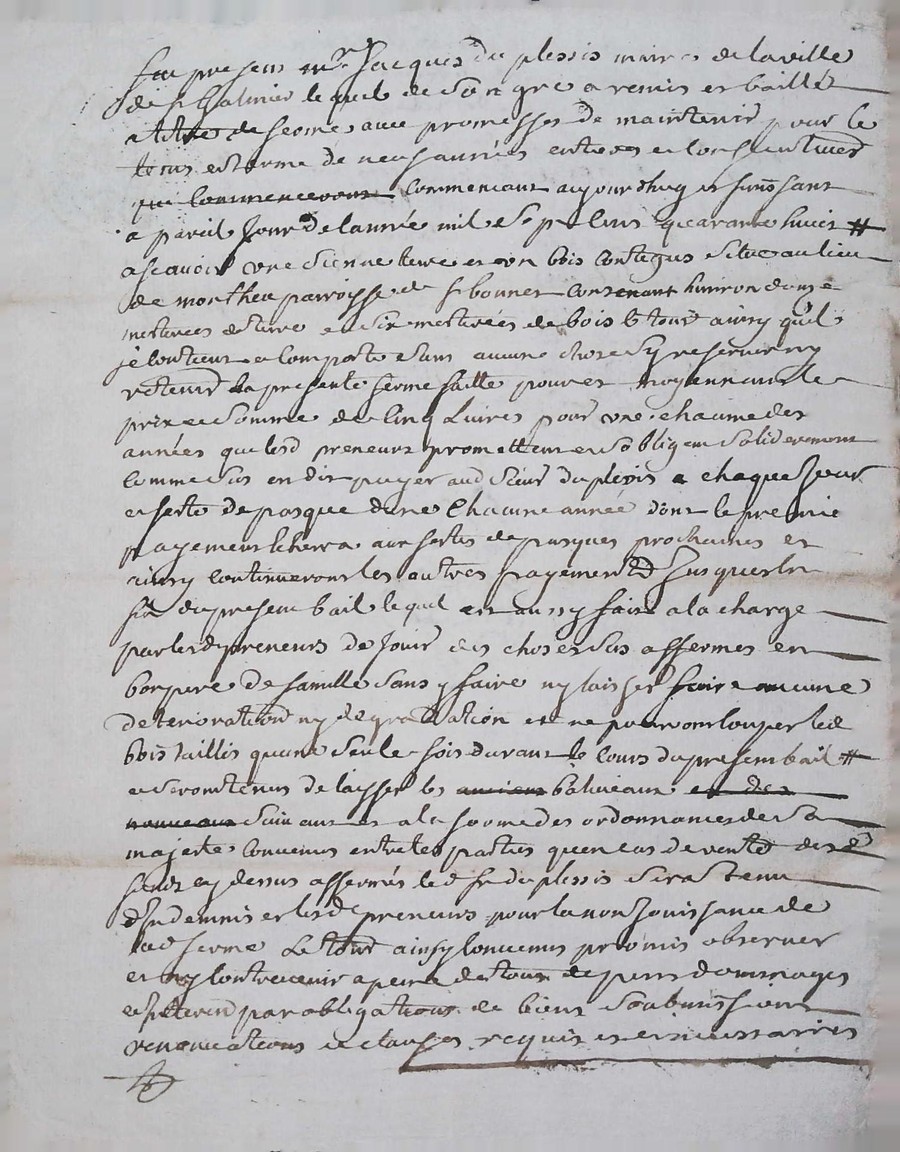 feu presens mr Jacques du plessis maire de la ville
de st Galmier lequel de son gré a remis et baillé
a titre de ferme avec promesses de maintenir pour le
tems et terme de neuf années entieres et consecutives
qui commenceront commencant aujourdhuy et finissant
a pareil Jour de lannée mil sept cens quarante huict #
ascavoir une sienne terre et un bois contigus situés au lieu
de montheu parroisse de st bonnet contenant huiron douze
mesterées de terre et six mesterées de bois le tout ainsy quil
se contient et comporte sans aucune chose sy reserver ny
retenir la presente ferme faitte pour et moyennant le
prix et somme de cinq Livres pour une chacune des
années que lesd preneurs promettent et sobligent solidairement
comme sus en dit payer aud Sieur duplessis a chaque Jour
et feste de pasque dune Chacune année dont le premier
payement echerra aux festes de pasques prochaines et
ainsy continueront les autres payements Jusques la
fin du present bail lequel est aussy fait a la charge
par lesd preneurs de Jouir des choses sus affermés en
bon pere de famille sans y faire ny laisser faire aucune
deterioration ny degradation et ne pourront couper led
bois taillis quune seule fois durant le cours du present bail #
et seront tenus de laisser les anciens baliveaux et des
nouveaux suivant et a la forme des ordonnances de Sa
majesté convenus entre les parties quen cas de vente desd
fonds cy dessus affermés led sr duplessis sera tenu
dIndemniser lesd preneurs pour la non Jouissance de
lad ferme Le tout ainsy convenus promis observer
et ny contrevenir a peine de tous depens dommages
et interests par obligations de biens soubmissions
renonciations et clauses requises et necessaires